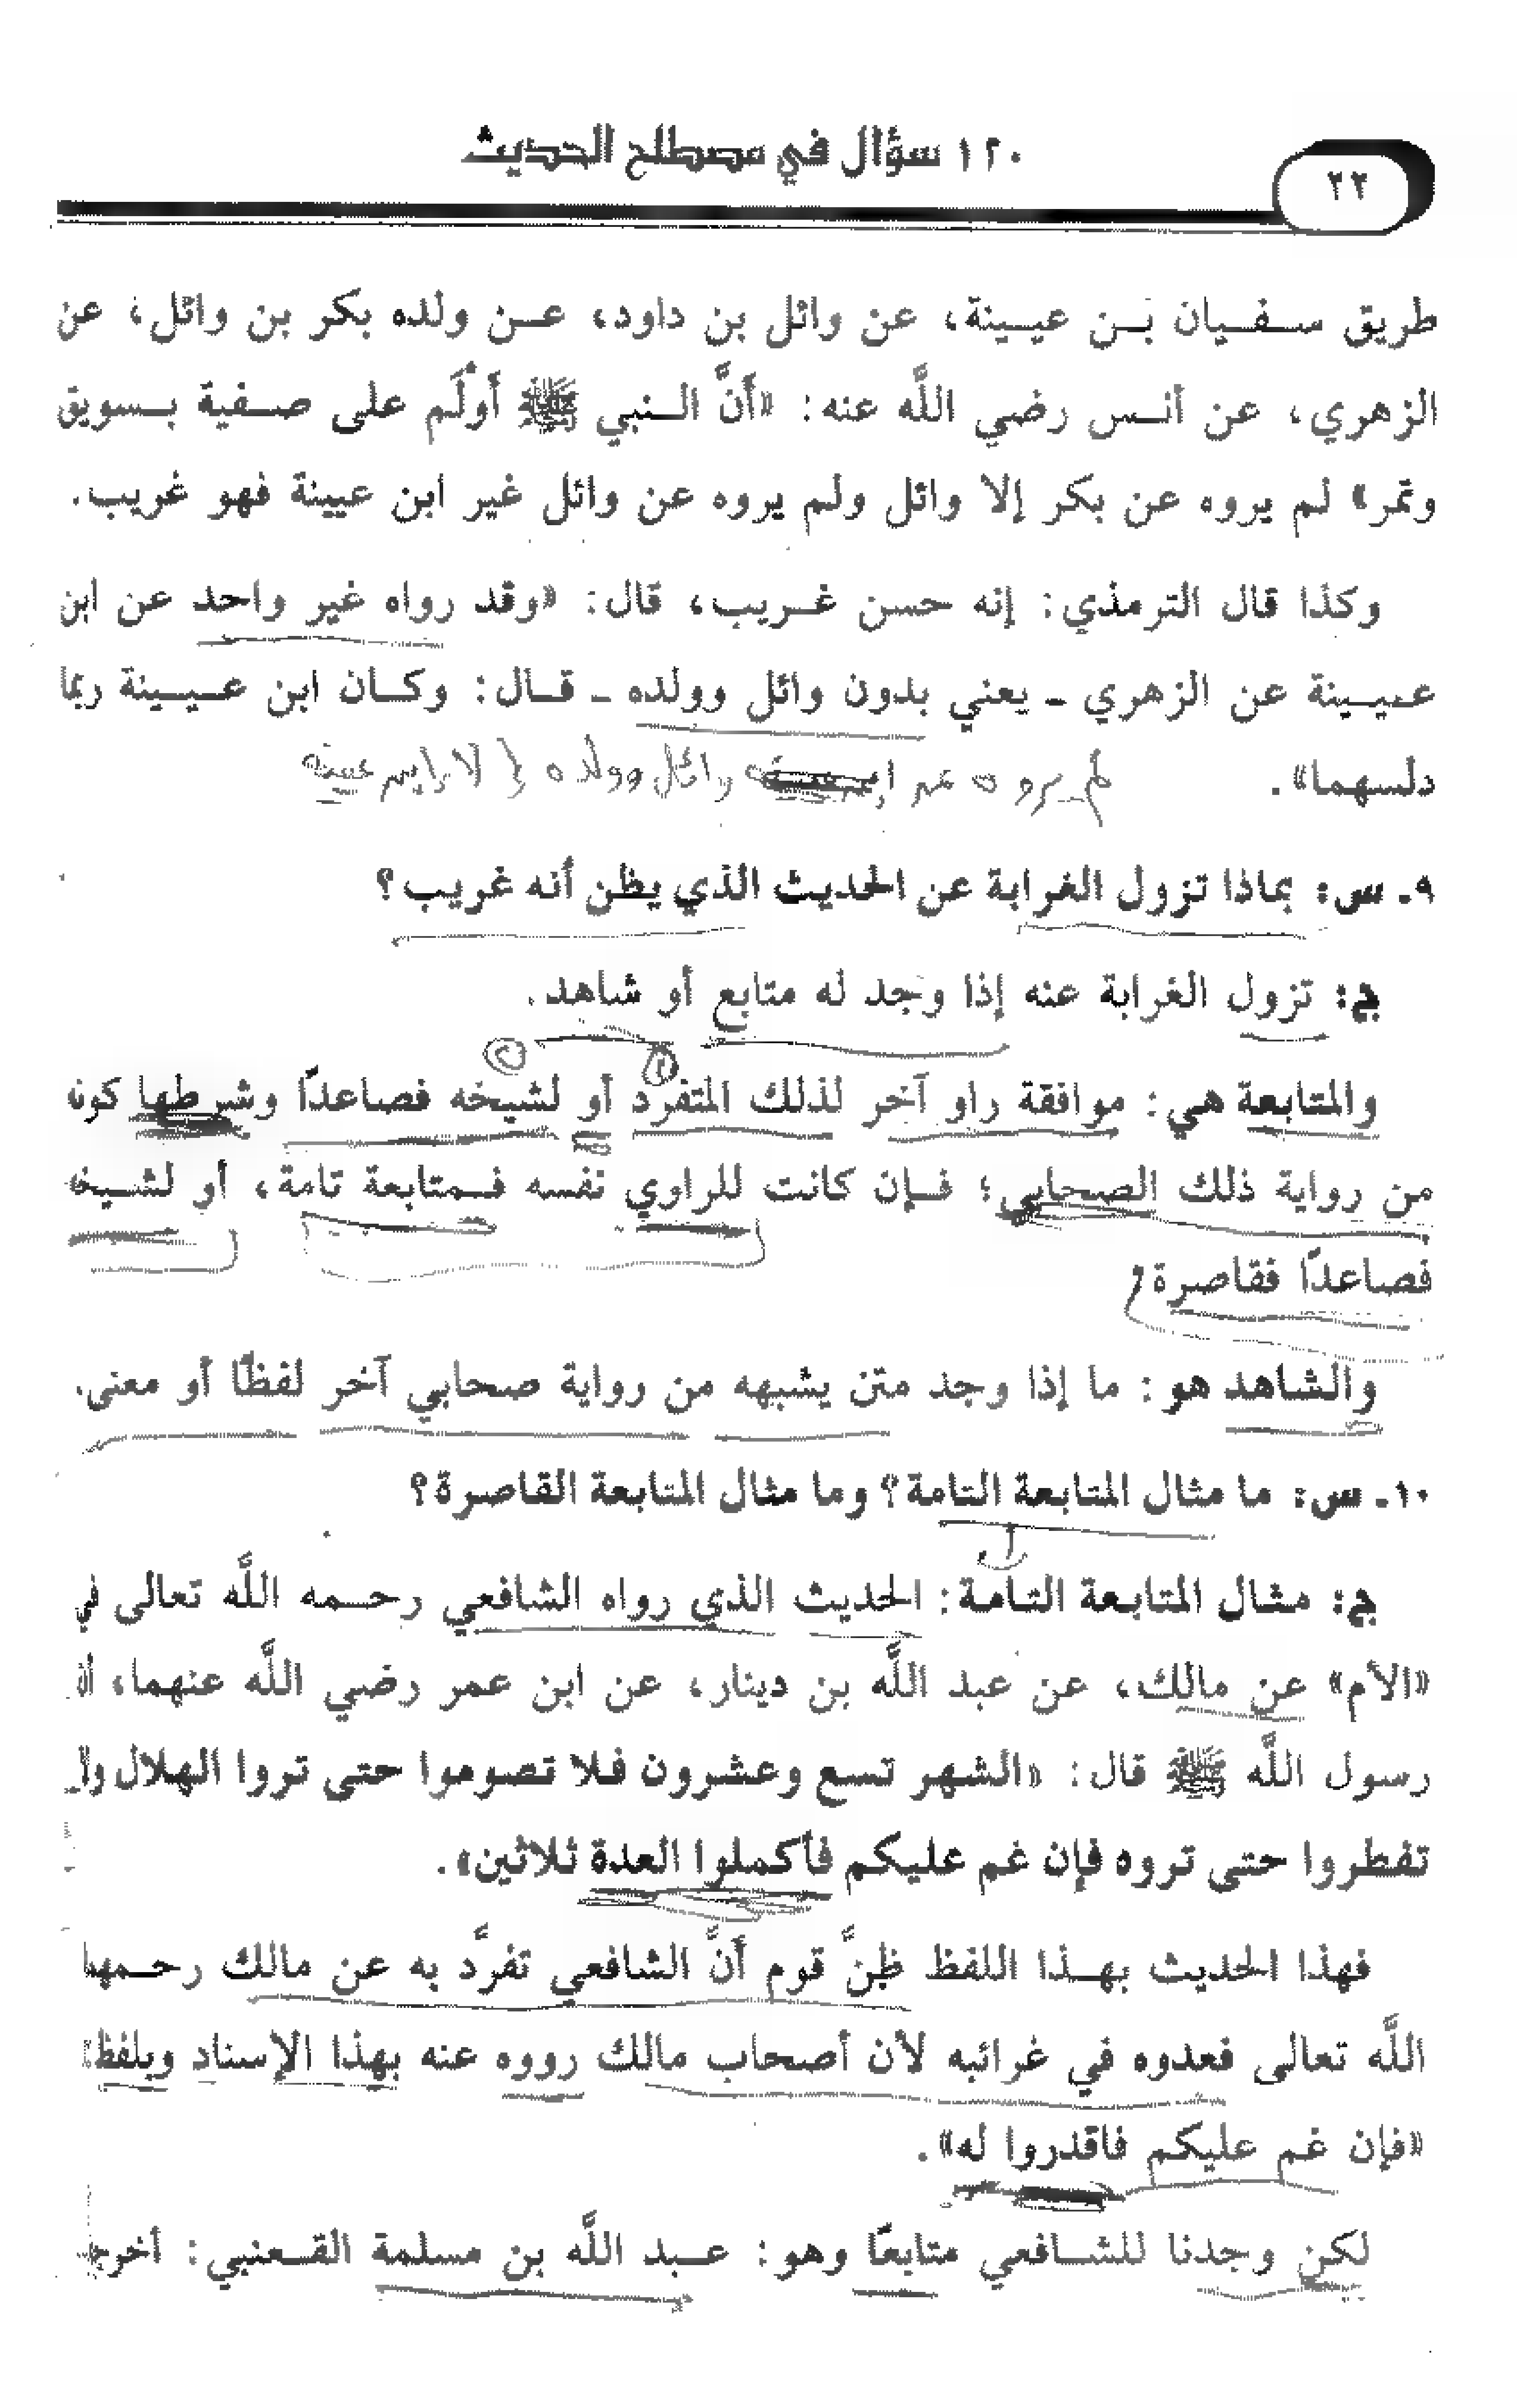 ١٢٠ سؤال في مصطلح الحديث
٢٢
طريق سفيان بن عيينة، عن وائل بن داود، عن ولده بكر بن وائل، عن
الزهري، عن أنس رضي اللَّه عنه: «أَنَّ النبي ﷺ أَوْلَم على صفية بسويق
وتمر» لم يروه عن بكر إلا وائل ولم يروه عن وائل غير ابن عيينة فهو غريب.
وكذا قال الترمذي: إنه حسن غريب، قال: «وقد رواه غير واحد عن ابن
عيينة عن الزهري - يعني بدون وائل وولده - قال: وكان ابن عيينة ربما
دلسهما».
لم يروه عن وائل وولده إلا ابن عيينة
٩ـ س: بماذا تزول الغرابة عن الحديث الذي يظن أنه غريب؟
ج: تزول الغرابة عنه إذا وجد له متابع أو شاهد.
والمتابعة هي: موافقة راو آخر لذلك المتفرد أو لشيخه فصاعدًا وشرطها كونه
من رواية ذلك الصحابي؛ فإن كانت للراوي نفسه فمتابعة تامة، أو لشيخه
فصاعدًا فقاصرة،
والشاهد هو: ما إذا وجد متن يشبهه من رواية صحابي آخر لفظًا أو معنى.
١٠ـ س: ما مثال المتابعة التامة؟ وما مثال المتابعة القاصرة؟
ج: مثال المتابعة التامة: الحديث الذي رواه الشافعي رحمه اللَّه تعالى في
«الأم» عن مالك، عن عبد اللَّه بن دينار، عن ابن عمر رضي اللَّه عنهما، أن
رسول اللَّه ﷺ قال: «الشهر تسع وعشرون فلا تصوموا حتى تروا الهلال ولا
تفطروا حتى تروه فإن غم عليكم فأكملوا العدة ثلاثين».
فهذا الحديث بهذا اللفظ ظنَّ قوم أَنَّ الشافعي تفرَّد به عن مالك رحمهما
اللَّه تعالى فعدوه في غرائبه لأن أصحاب مالك رووه عنه بهذا الإسناد وبلفظ:
«فإن غم عليكم فاقدروا له».
لكن وجدنا للشافعي متابعًا وهو: عبد اللَّه بن مسلمة القعنبي: أخرجه